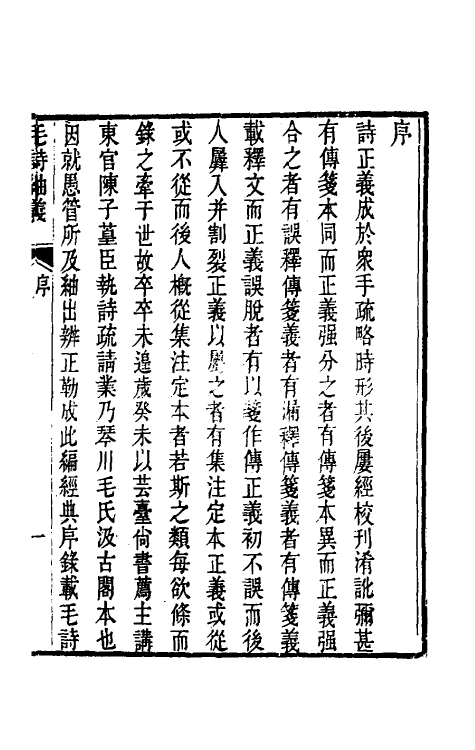 序
詩正義成於衆手疏略時形其後屢經校刊淆訛彌甚
有傳箋本同而正義强分之者有傳箋本異而正義强
合之者有誤釋傳箋義者有漏釋傳箋義者有傳箋義
載釋文而正義誤脫者有以箋作傳正義初不誤而後
人羼入并割裂正義以屬之者有集注定本正義或從
或不從而後人槪從集注定本者若斯之類每欲條而
錄之牽于世故卒卒未遑歲癸未以芸臺尙書薦主講
東官陳子墓臣執詩疏請業乃琴川毛氏汲古閣本也
因就愚管所及紬出辨正勒成此編經典序錄載毛詩
毛詩紬義
序
一